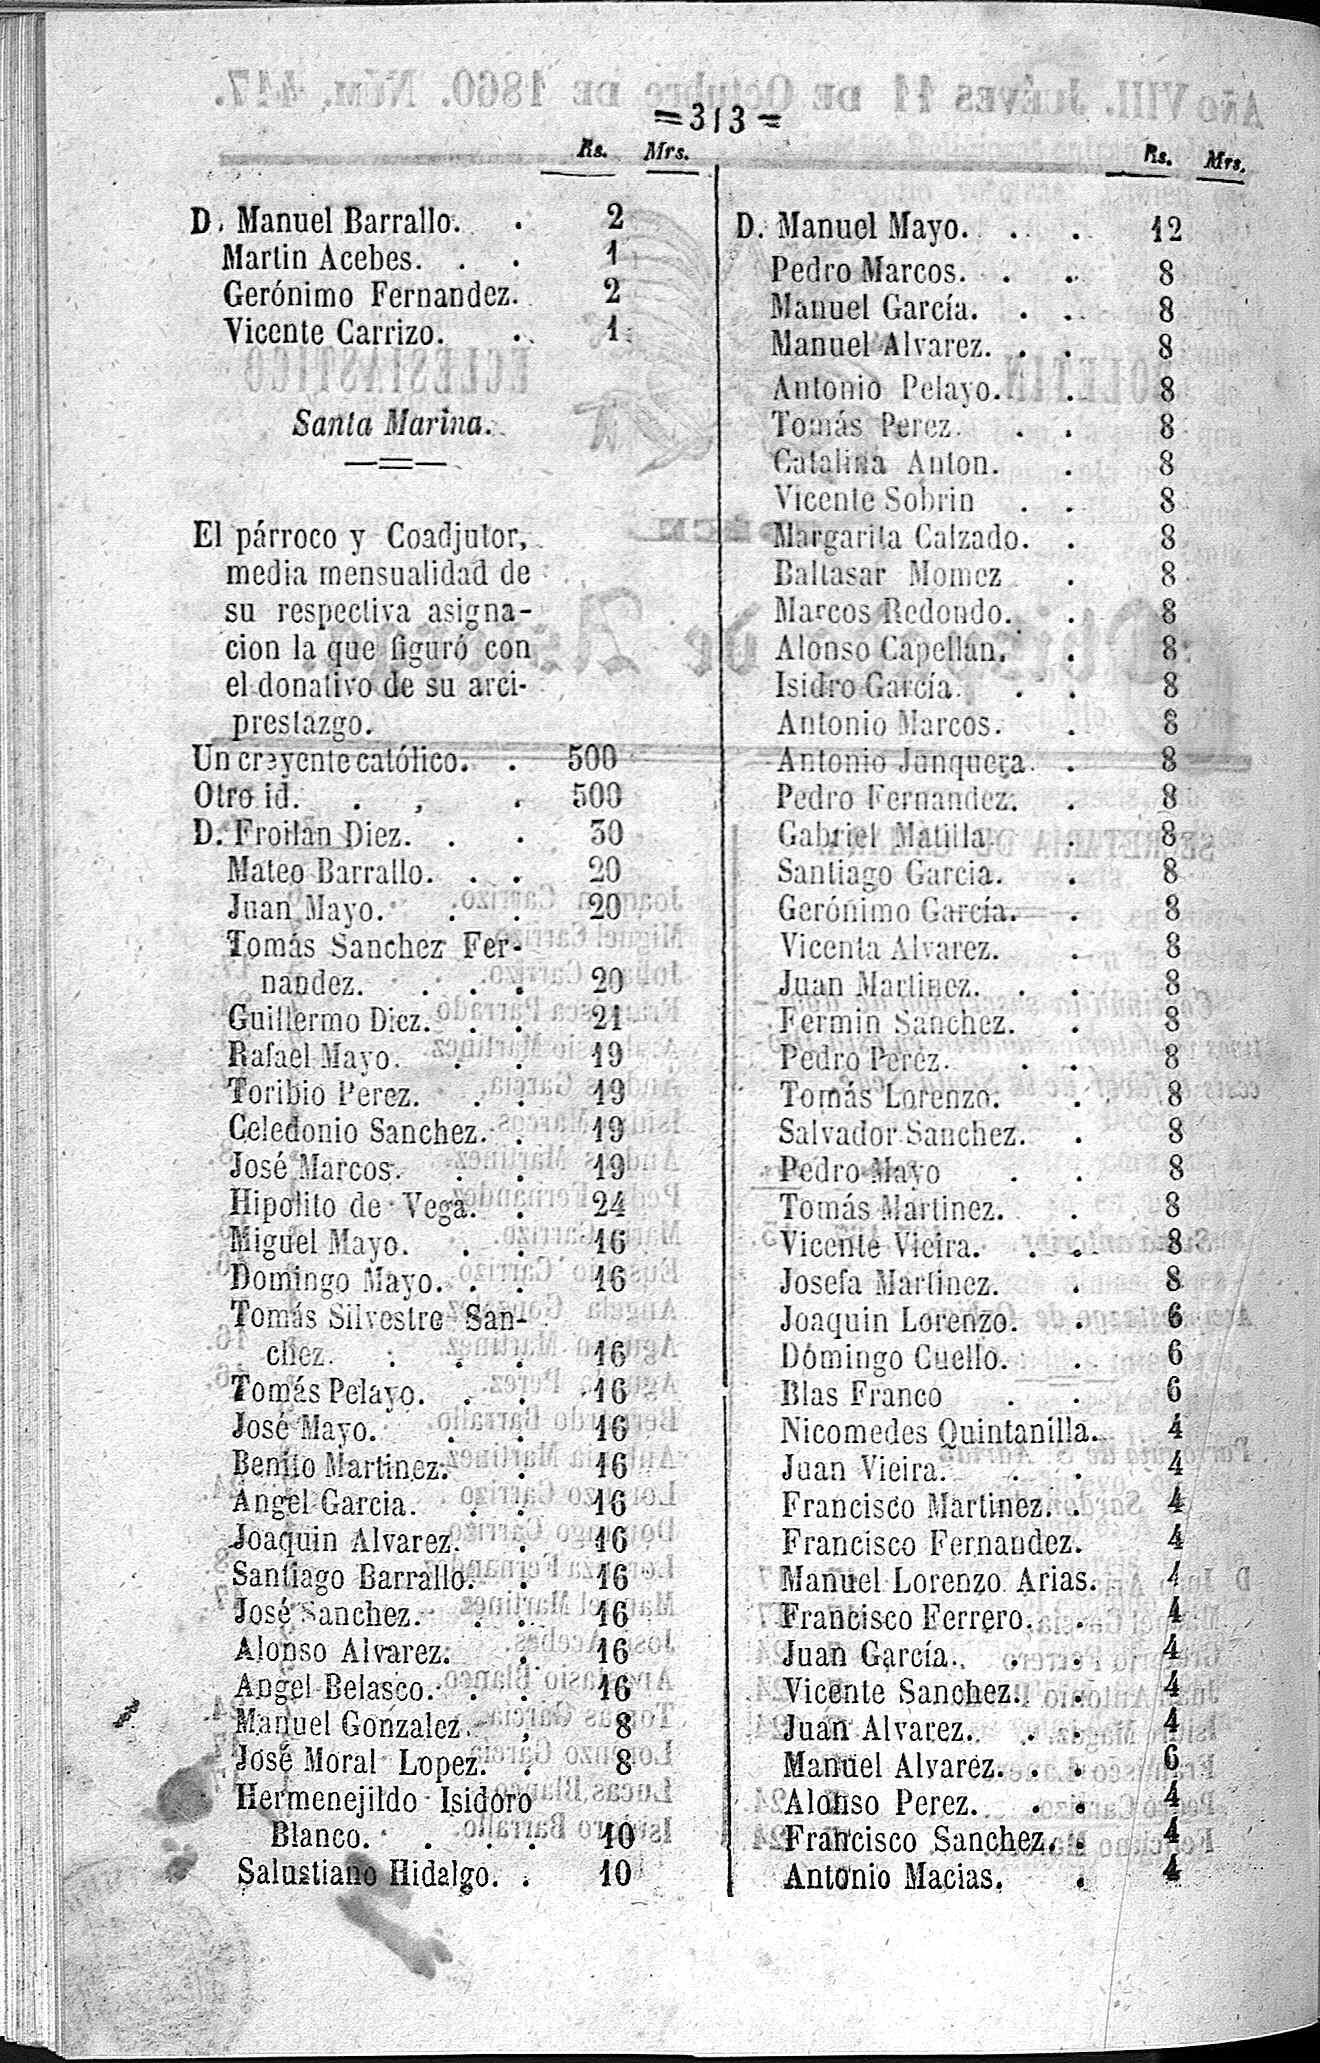 =313=
Rs. Mrs.
D. Manuel Barrallo. . 2
Martin Acebes. . . 1
Gerónimo Fernandez. 2
Vicente Carrizo. . 1
Santa Marina.
El párroco y Coadjutor,
media mensualidad de
su respectiva asigna-
cion la que figuró con
el donativo de su arci-
prestazgo.
Un creyente católico. . 500
Otro id. . , . 500
D. Froilan Diez. . . 30
Mateo Barrallo. . . 20
Juan Mayo. . . 20
Tomás Sanchez Fer-
nandez. . . . 20
Guillermo Diez. . . 21
Rafael Mayo. . . 19
Toribio Perez. . . 19
Celedonio Sanchez. . 19
José Marcos. . . 19
Hipolito de Vega. . 24
Miguel Mayo. . . 16
Domingo Mayo. . . 16
Tomás Silvestre San-
chez. . . . 16
Tomás Pelayo. . . 16
José Mayo. . . 16
Benito Martinez. . 16
Angel Garcia. . . 16
Joaquin Alvarez. . 16
Santiago Barrallo. . 16
José Sanchez. . . 16
Alonso Alvarez. . 16
Angel Belasco. . . 16
Manuel Gonzalez. , 8
José Moral Lopez. . 8
Hermenejildo Isidoro
Blanco. . . . 10
Salustiano Hidalgo. . 10
Rs. Mrs.
D. Manuel Mayo. . . 12
Pedro Marcos. . . 8
Manuel García. . . 8
Manuel Alvarez. . . 8
Antonio Pelayo. . 8
Tomás Perez. . . 8
Catalina Anton. . 8
Vicente Sobrin . . 8
Margarita Calzado. . 8
Baltasar Momez . 8
Marcos Redondo. . 8
Alonso Capellan. . 8
Isidro García. . . 8
Antonio Marcos. . 8
Antonio Junquera. . 8
Pedro Fernandez. . 8
Gabriel Matilla. . 8
Santiago Garcia. . 8
Gerónimo García. . 8
Vicenta Alvarez. . 8
Juan Martinez. . . 8
Fermin Sanchez. . 8
Pedro Perez. . . 8
Tomás Lorenzo. . 8
Salvador Sanchez. . 8
Pedro Mayo . . 8
Tomás Martinez. . 8
Vicente Vieira. . . 8
Josefa Martinez. . 8
Joaquin Lorenzo. . 6
Domingo Cuello. . 6
Blas Franco . . 6
Nicomedes Quintanilla. 4
Juan Vieira. . . 4
Francisco Martinez. . 4
Francisco Fernandez. 4
Manuel Lorenzo Arias. 4
Francisco Ferrero. . 4
Juan García. . . 4
Vicente Sanchez. . 4
Juan Alvarez. . . 4
Manuel Alvarez. . . 6
Alonso Perez. . . 4
Francisco Sanchez. . 4
Antonio Macias. . 4